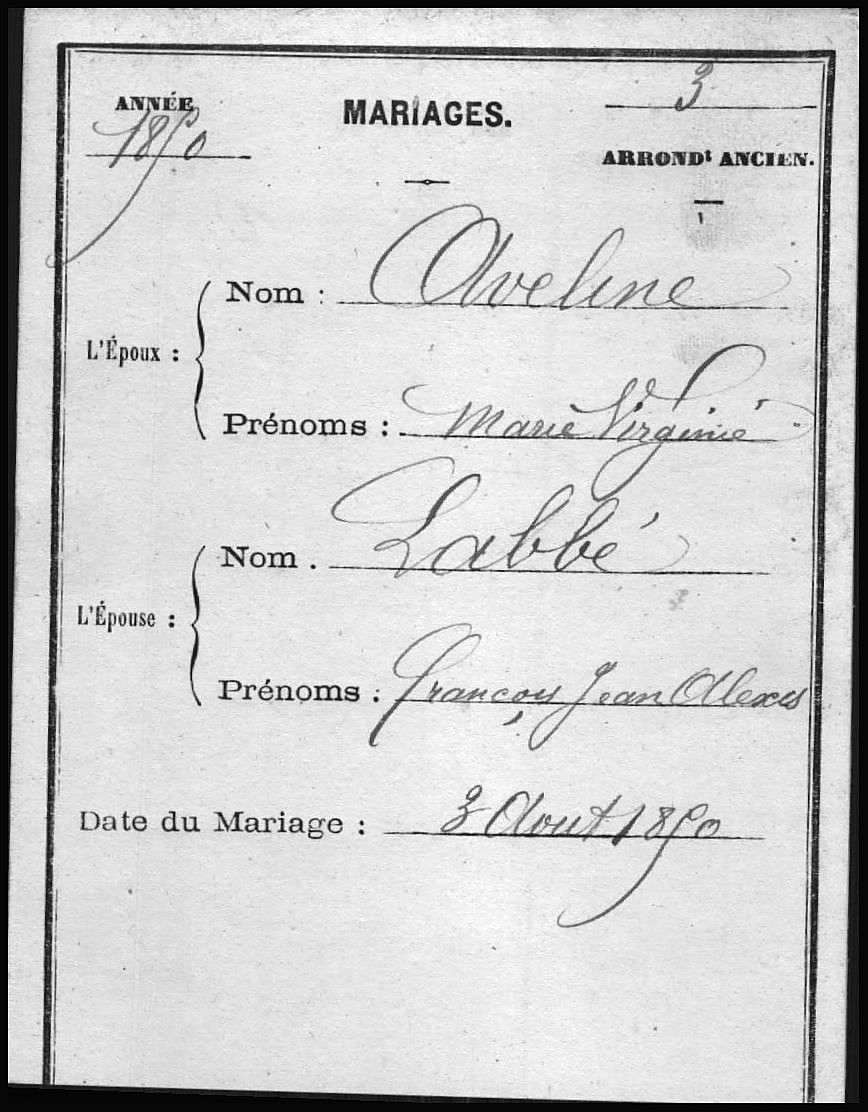 ANNÉE
1850
MARIAGES.
3
ARRONDt ANCIEN.
L'Époux :
Nom : Aveline
Prénoms : Marie Virginie
L'Épouse :
Nom . Labbé
Prénoms : François Jean Alexis
Date du Mariage : 3 Aout 1850